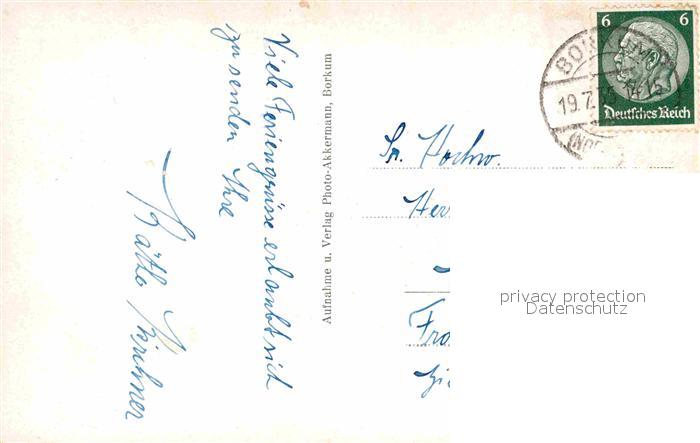 Viele Feriengrüsse erlaubt sich
zu senden Ihre
Käthe Kirchner
Aufnahme u. Verlag Photo-Akkermann, Borkum
6 6
Deutsches Reich
BORKUM
19.7.
Sr. Hochw.
Her
Fra
privacy protection
Datenschutz